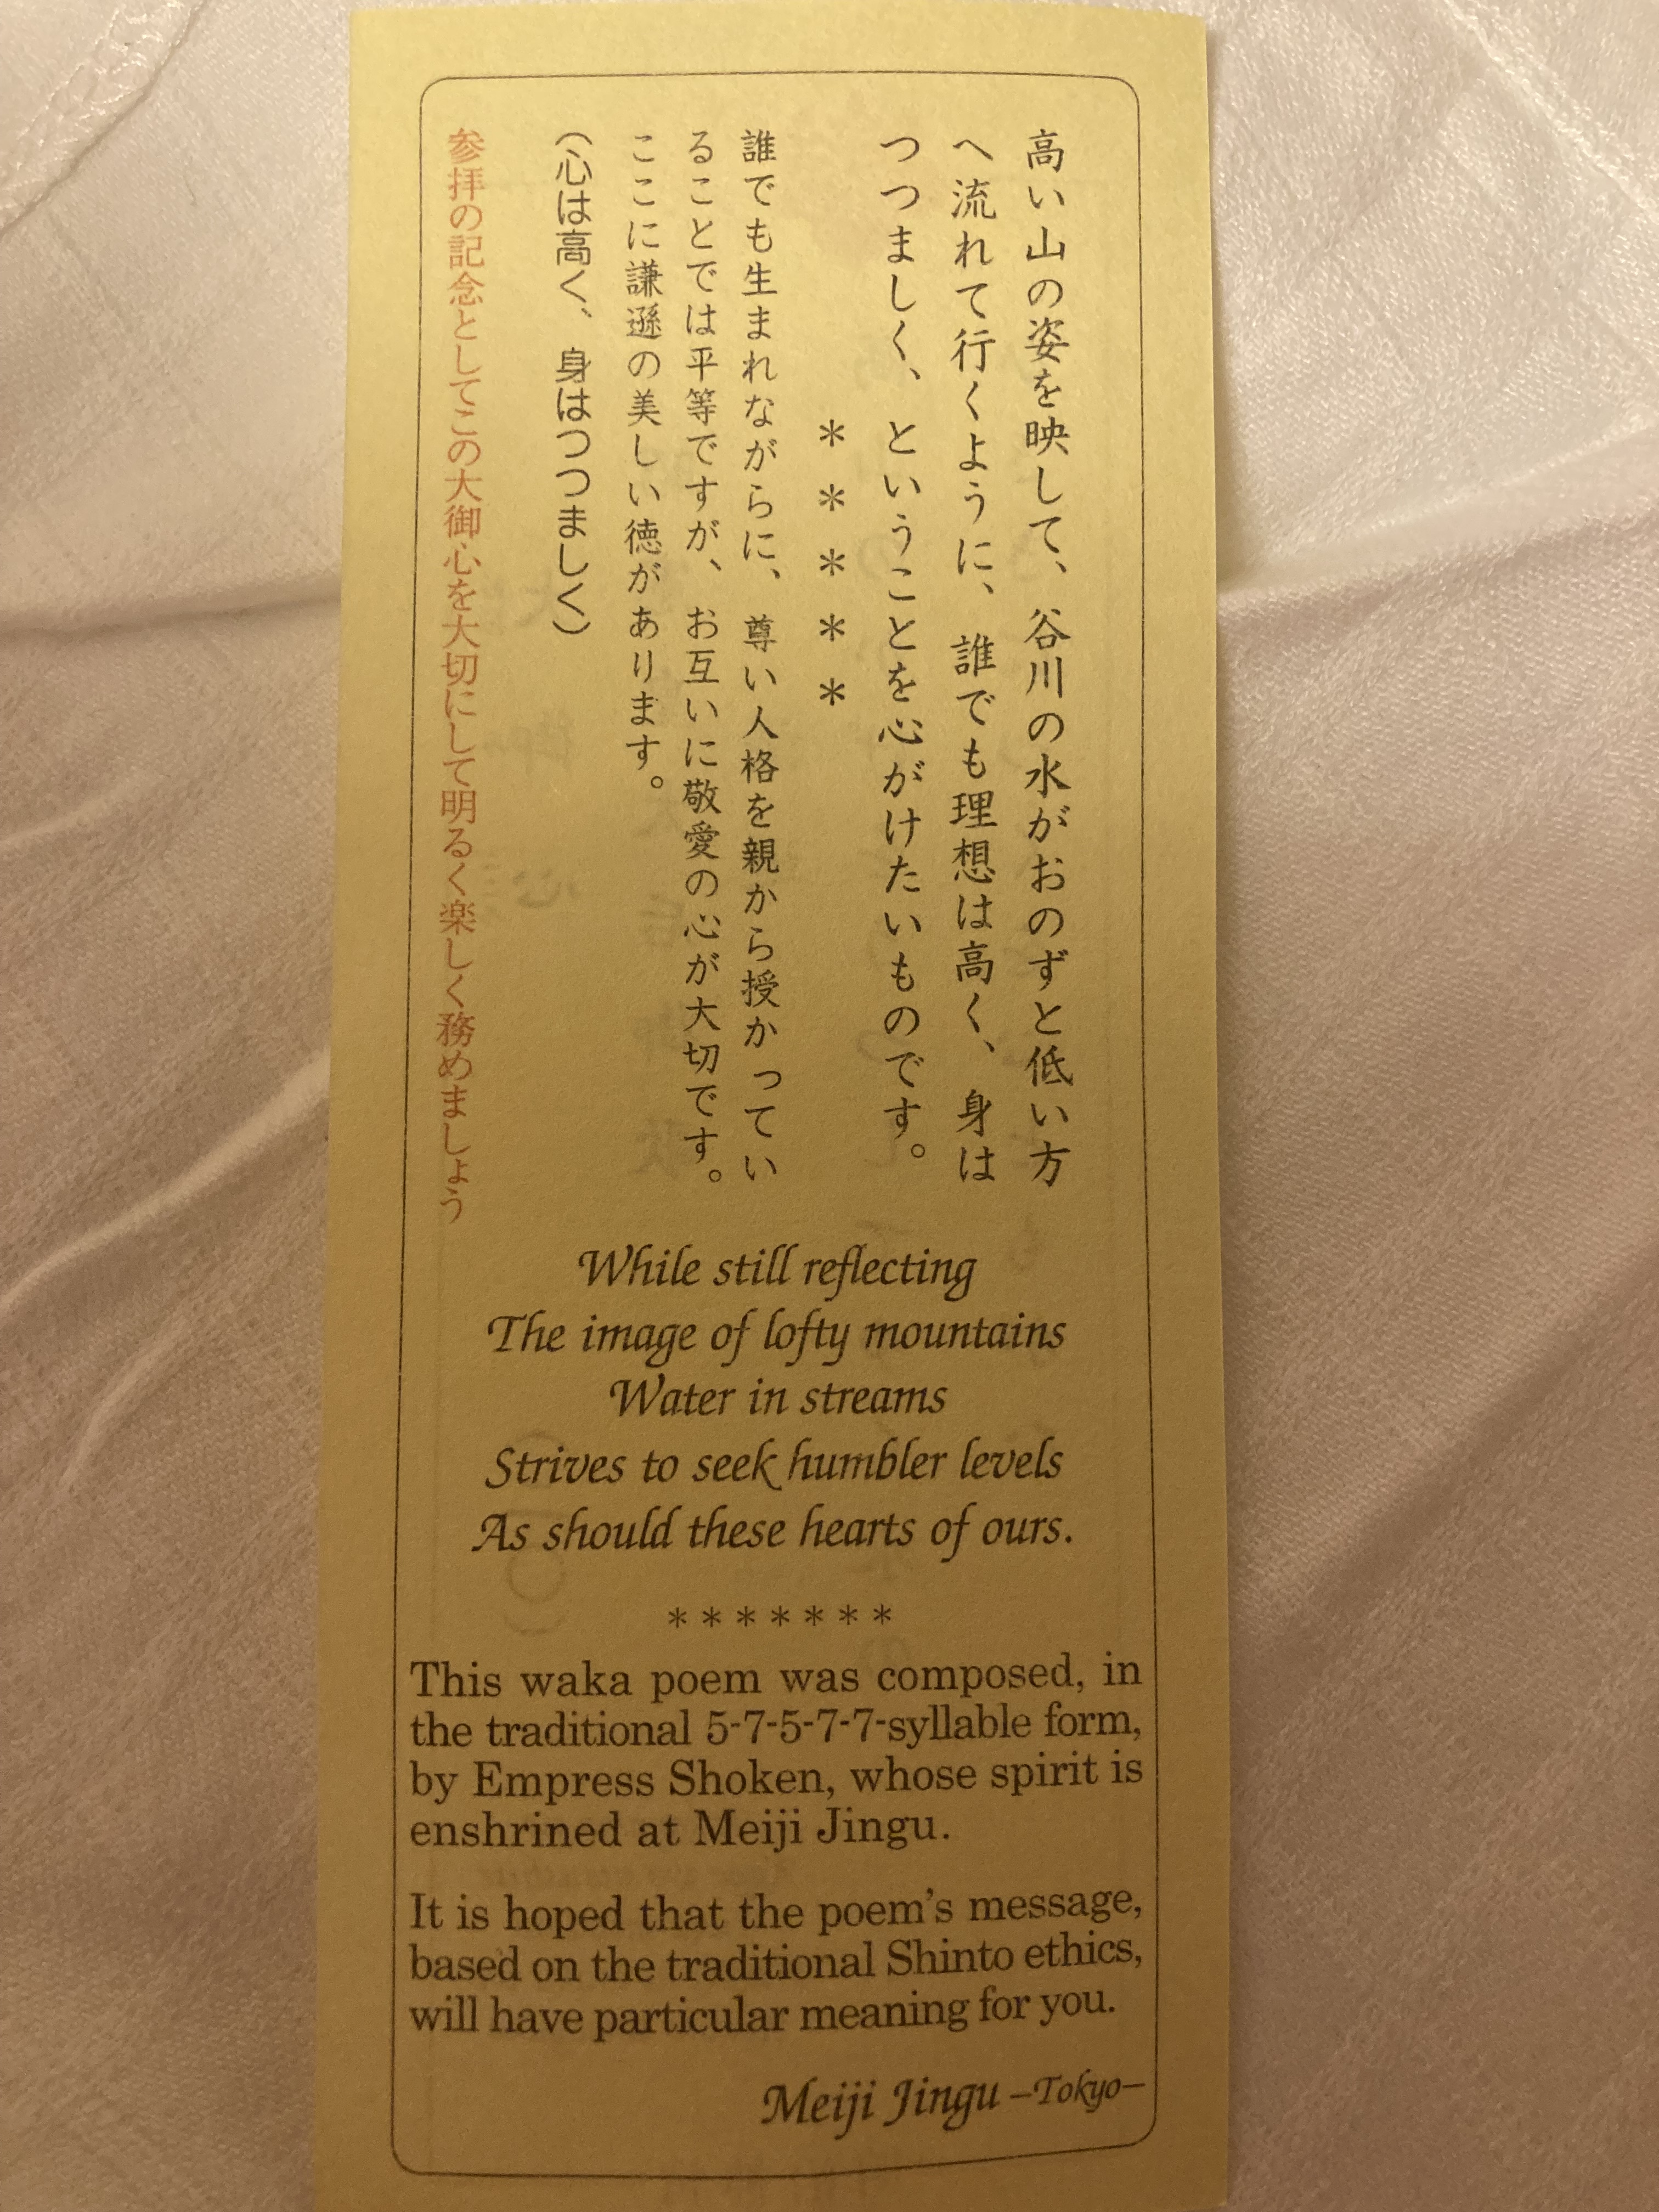 高い山の姿を映して、谷川の水がおのずと低い方
へ流れて行くように、誰でも理想は高く、身は
つつましく、ということを心がけたいものです。
＊＊＊＊＊
誰でも生まれながらに、尊い人格を親から授かってい
ることでは平等ですが、お互いに敬愛の心が大切です。
ここに謙遜の美しい徳があります。
（心は高く、身はつつましく）
参拝の記念としてこの大御心を大切にして明るく楽しく務めましょう
While still reflecting
The image of lofty mountains
Water in streams
Strives to seek humbler levels
As should these hearts of ours.
*******
This waka poem was composed, in
the traditional 5-7-5-7-7-syllable form,
by Empress Shoken, whose spirit is
enshrined at Meiji Jingu.
It is hoped that the poem's message,
based on the traditional Shinto ethics,
will have particular meaning for you.
Meiji Jingu –Tokyo–